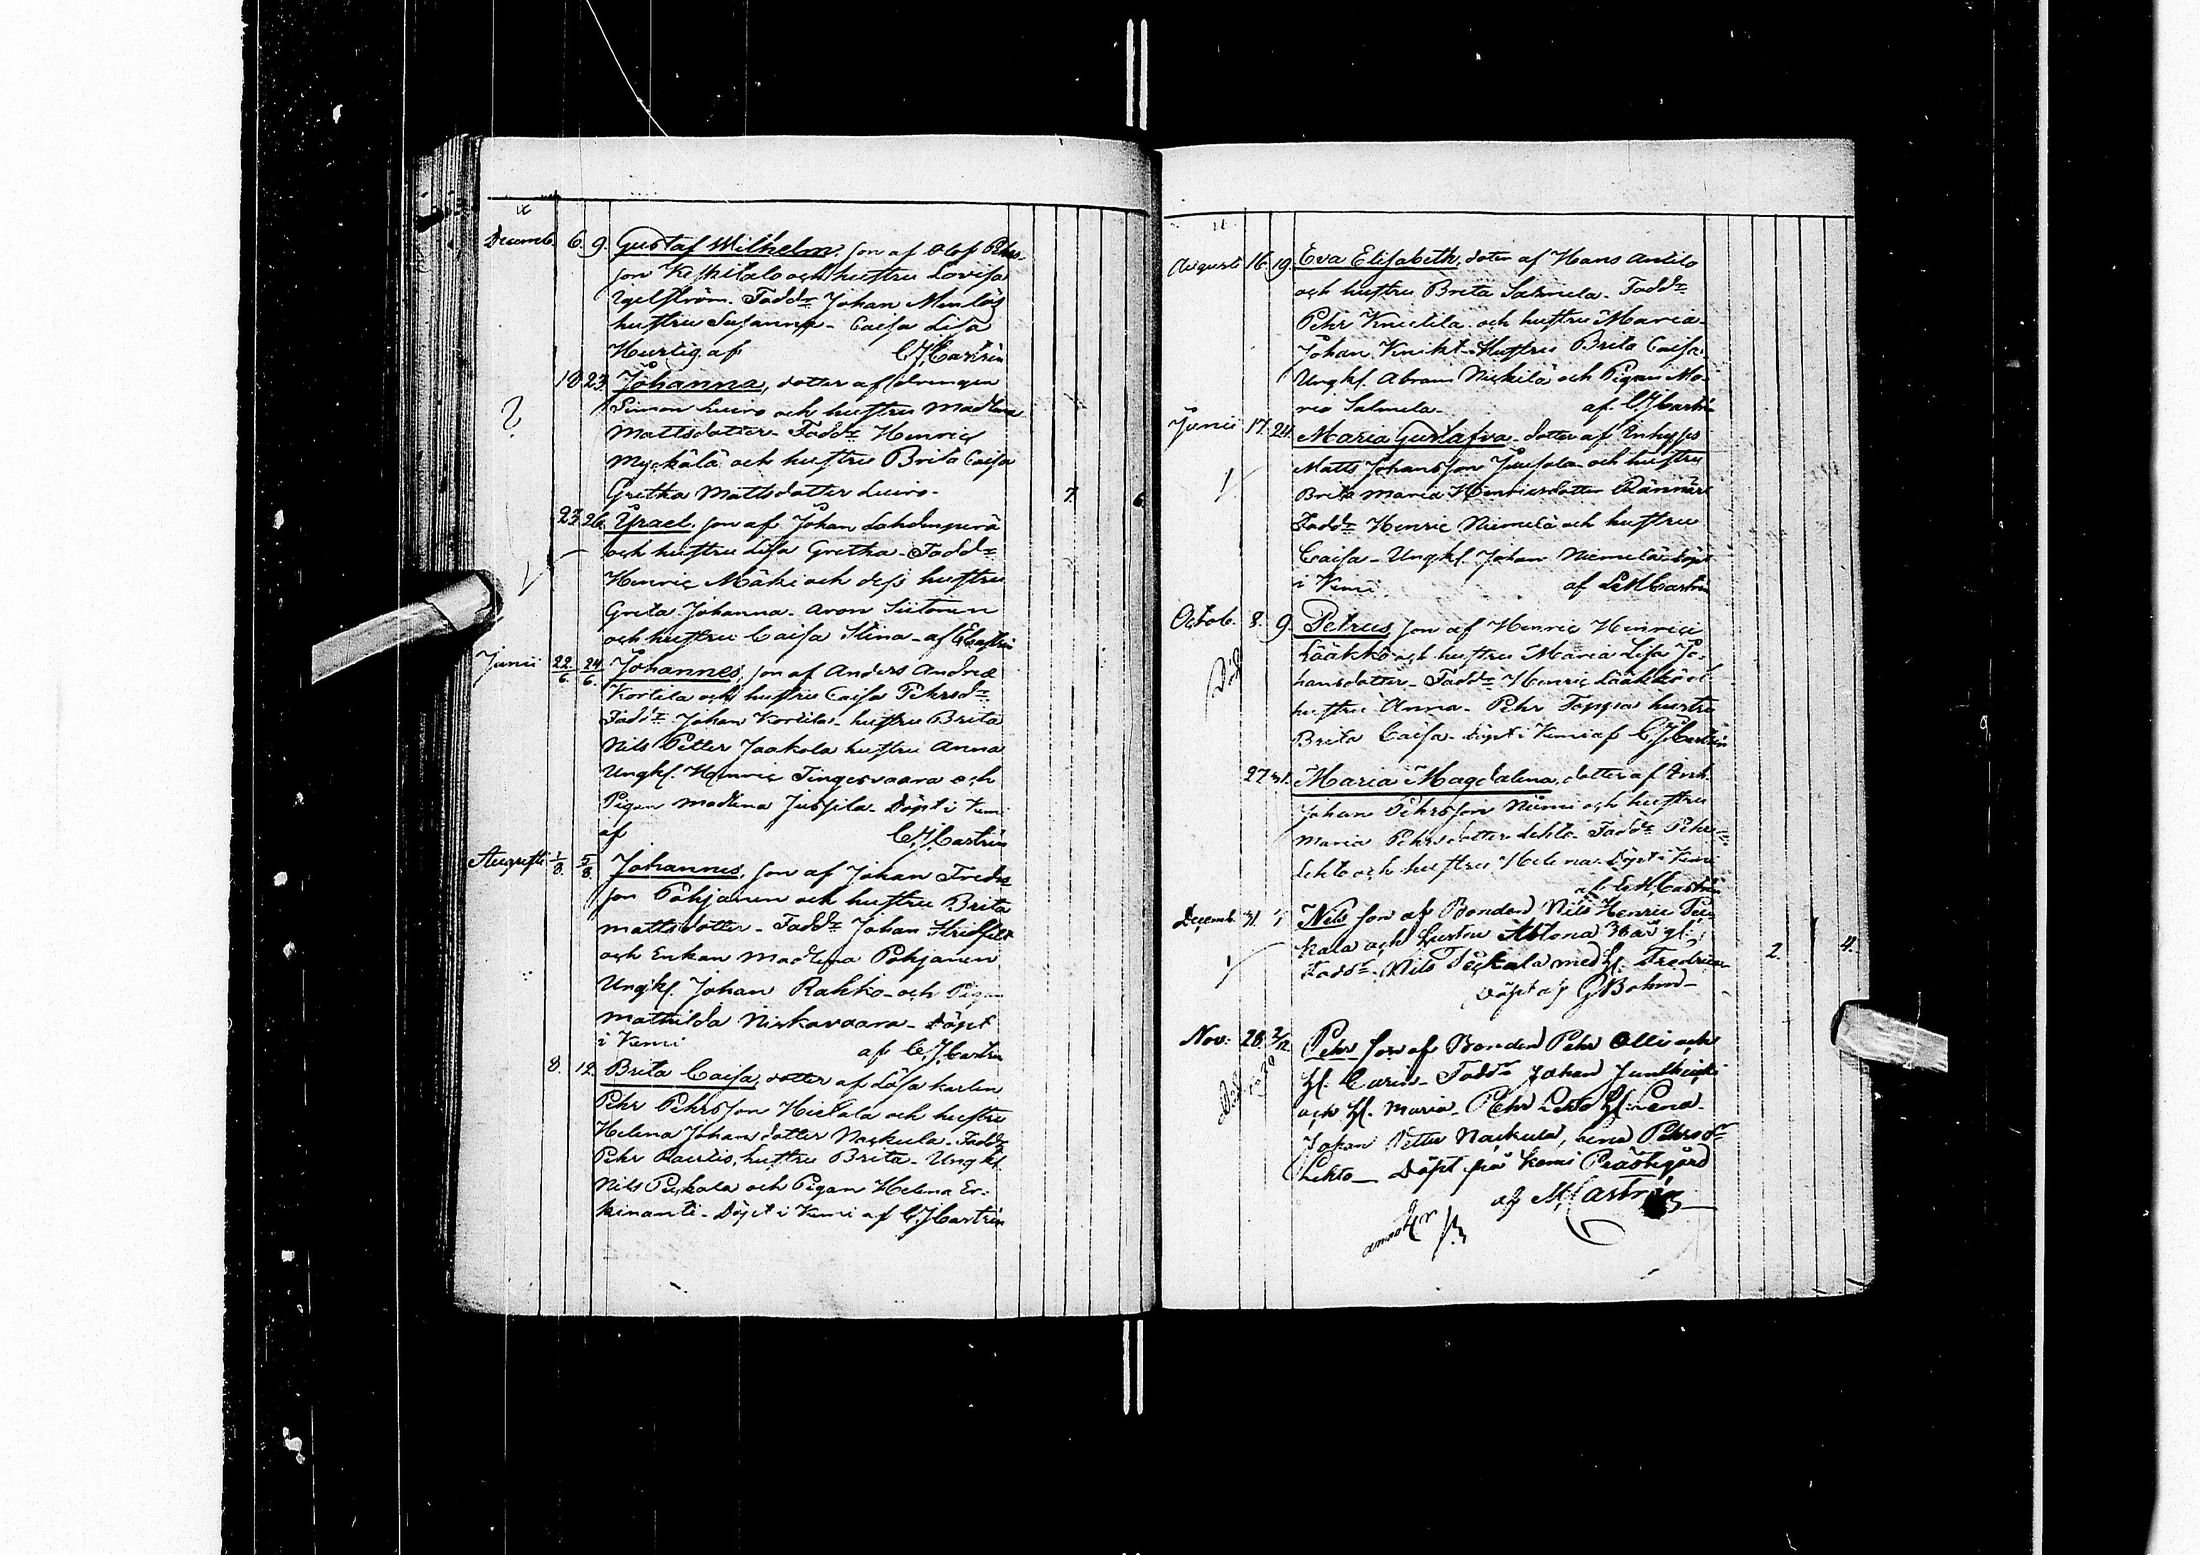 Decemb. 6. 9. Gustaf Wilhelm, son af Olof Pehrs-
son Keskitalo och hustru Lovisa
Igelström. Faddr Johan
hustru Susanna - Caisa Lisa
Hurtig af C J Castrén
18 23. Johanna, dotter af drengen
Simon Luiro och hustru Madlena
Mattsdotter - Faddr Henric
Myckälä och hustru Brita Caisa
Gretha Mattsdotter Luiro -
7. 6
23 26. Ysrael, son af Johan Lahdenperä
och hustru Lisa Gretha - Faddr
Henric Mäki och dess hustru
Greta Johanna - Aron Siitonen
och hustru Caisa Stina - af C Castrén
Junii 22/6. 24/6. Johannes, son af Anders Andres
Kortila och hustru Caisa Pehrsdr
Faddr Johan Kortila - hustru Brita
Nils Petter Jaakola hustru Anna
Ungkl. Henric Tingesvaara och
Pigan Madlena Jussila - Döpt i Kemi
af C J Castrén
Augusti 1/8. 5/8. Johannes, son af Johan Fredr
son Pohjanen och hustru Brita
Mattsdotter - Faddr Johan
och Enkan Madlena Pohjanen
Ungkl. Johan Rahko - och Pigan
Mathilda Niskavaara - Döpt
i Kemi af C J Castrén
8. 12. Brita Caisa, dotter af Lösa karlen
Pehr Pehrsson Hietala och hustru
Helena Johansdotter Nackula - Faddr
Pehr hustru Brita - Ungkl.
Nils Peckala och Pigan Helena Er-
kinantti - Döpt i Kemi af C J Castrén
Augusti 16. 19. Eva Elisabeth, doter af Hans Antila
och hustru Brita Salmela - Faddr
Pehr och hustru Maria -
Johan Knikt - Hustru Brita Caisa
Ungkl. Abram Niskilä och Pigan Ma-
ria Salmela - af C J Castrén
Junii 17. 24. Maria Gustafva - dotter af Inhyses
Matts Johansson och hustru
Brita Maria Henricsdotter
Faddr Henric Niemelä och hustru
Caisa - Ungkl. Johan Niemelä Döpt
i Kemi af Castrén
Octob. 8. 9. Petrus son af Henric Henrici
Lääkkö och hustru Maria Lisa Jo-
hansdotter - Faddr Henric Lääkkö o
hustru Anna - Pehr Tappa hustru
Brita Caisa - döpt i Kemi af C J Castrén
Död
27. 31. Maria Magdalena, dotter af Inh.
Johan Pehrsson Niemi och hustru
Maria Pehrsdotter Lehto - Faddr Pehr
Lehto och hustru Helena - Döpt i Kemi
af Castrén
Decemb. 31. Nils son af Bonden Nils Henric Pec-
kala och hustru
Faddr - Nils Peckala med H. Fredrica
Döpt af G Bohm -
2. 4.
Nov: 28. 2/12 Pehr son af Bonden Pehr Olli och
H. Carin - Faddr Johan
och H. Maria - Pehr Lehto H. Lena -
Johan Petter Nackula, Lena Pehrsdr
Lehto - Döpt på Kemi Prästgård
af M Castrén